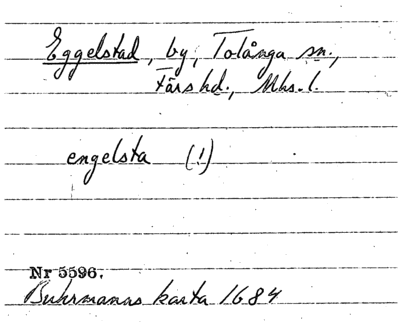 Eggelstad, by, Tolånga sn.,
Färs hd., Mhs. l.
engelsta (!)
Nr 5596.
Buhrmanns karta 1684